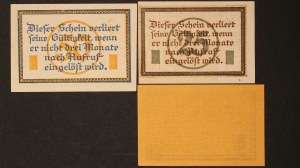 Dieser Schein verliert
seine Gültigkeit, wenn
er nicht drei Monate
nach Aufruf
eingelöst wird.
Dieser Schein verliert
seine Gültigkeit, wenn
er nicht drei Monate
nach Aufruf
eingelöst wird.